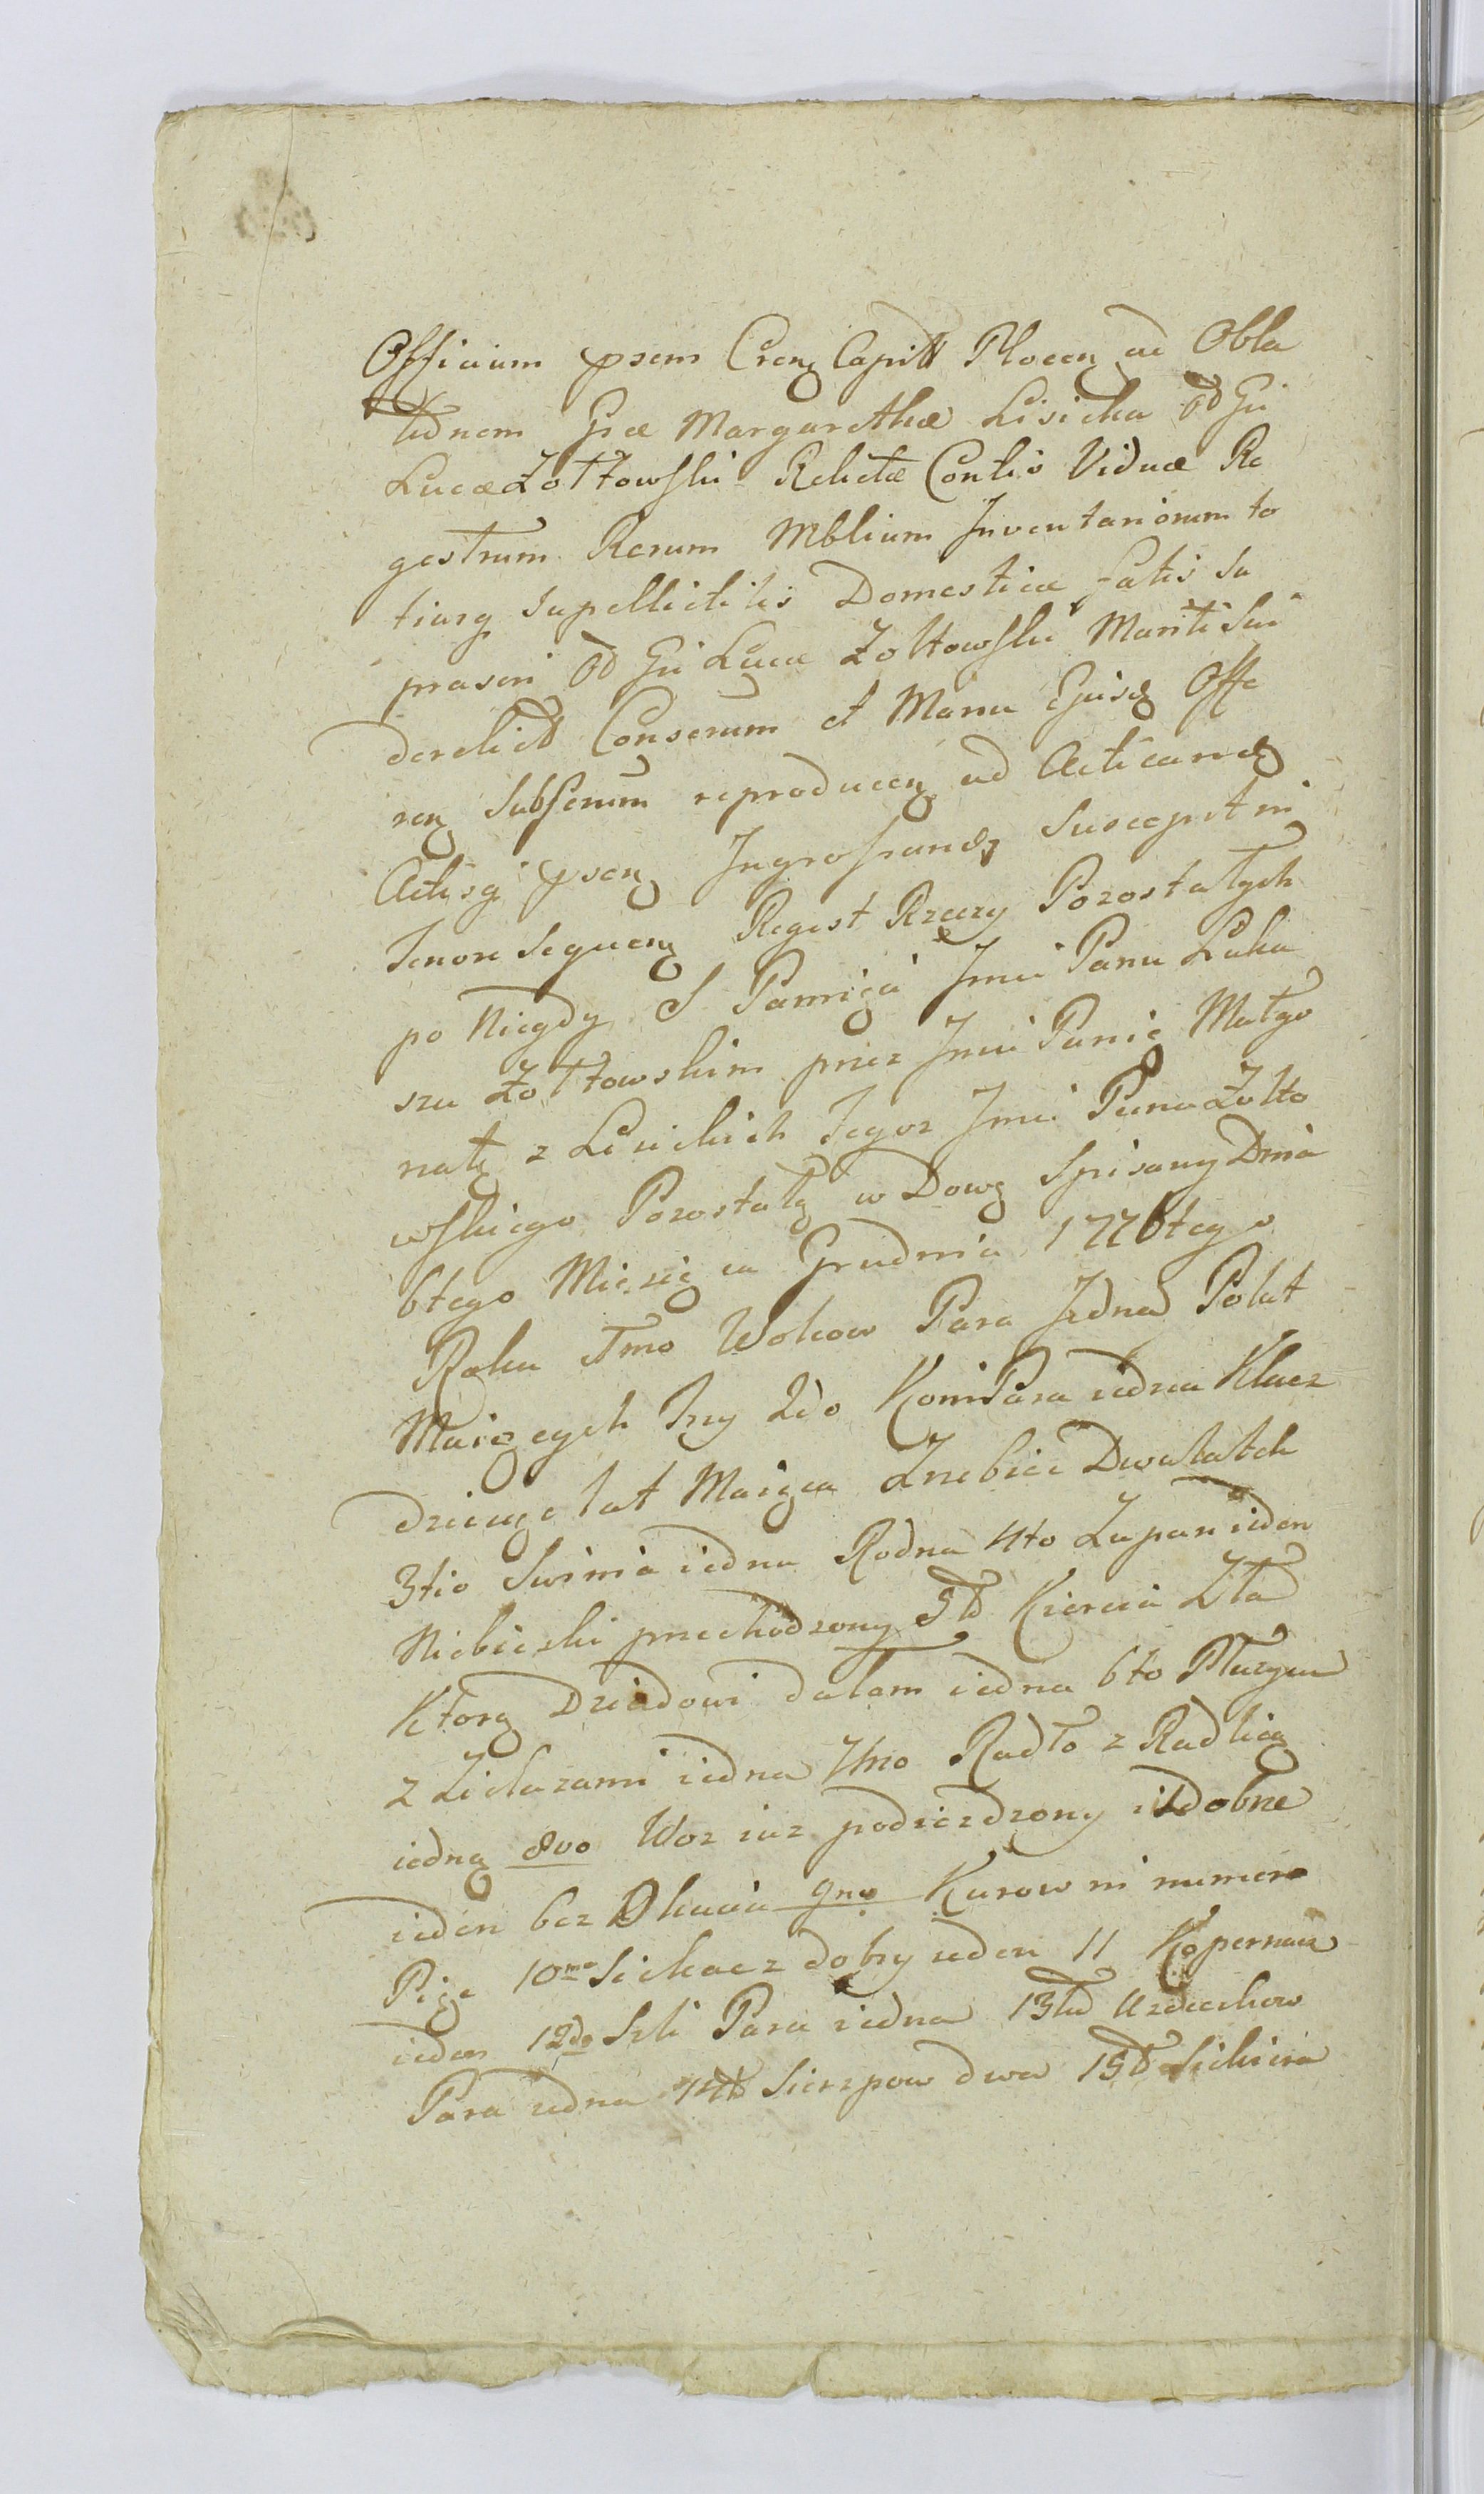 Officium psens Crens Capitt Plocen ad Obla
tionem Gsæ Margarethæ Lisicka Gsi
Lucæ Żołtowski Relictæ Contis Viduæ Re
gestrum Rerum Mblium Inventariorum to
tiusq Supellictilis Domesticæ fatis
Gsi Lucæ Zoltowski Mariti Sui
derelict Conserum et Manu Ejusd Offe
ren Subscrum reproducen ad Acticand
Actisq psen Ingrossand Suscepit
Tenore Sequen Regest Rzeczy Pozostałych
po Niegdy S Pamięci Jmci Panu Łuka
szu Żołtowskim przez Jmci Panię Małgo
rzatę z Lisickich Tegoz Jmci Pana Zolto
wskiego Pozostałą w Dowę Spisany Dnia
6tego Miesięca Grudnia 1776tego
Roku 1mo Wołow Para Jedna Po lat
Maiących Trzy 2do Koni Para iedna Klacz
dziewięc lat Maiąca Zrebiec Dwulatek
3tio Swinia iedna Rodna 4to Zupan ieden
Niebieski przechodzony 5to Kiercia Zła
Ktorą Dziadowi dałam iedna 6to Pluzyca
z Zielazami iedna 7mo Radło z Radlicą
iedną 8vo Woz iuz podiezdzony
ieden bez Okucia 9no Kurow in numero
Pięc 10mo Siekacz dobry ieden 11 Kopernias
ieden 12do Szli Para iedna 13tio Uzdeczkow
Para iedna 14to Sierzpow dwa 15to Siekiera